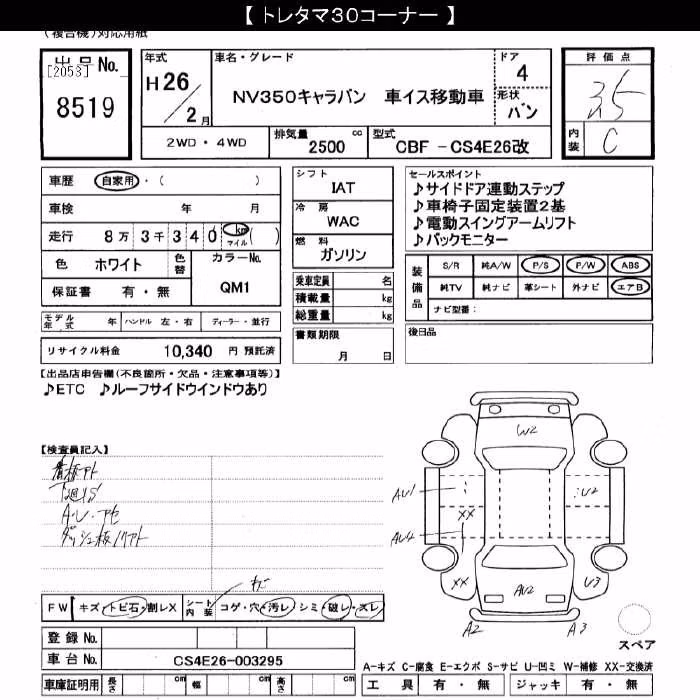 【 トレタマ30コーナー 】
(複合機)対応用紙
出品No.
[2053]
8519
年式
H 26 / 2 月
車名・グレード
NV350キャラバン 車イス移動車
ドア
4
形状
バン
2WD・4WD
排気量 cc
2500
型式
CBF －CS4E26改
評価点
3.5
内装
C
車歴 自家用・( )
車検 年 月
走行 8万 3千 3 4 0 km マイル ( )
色 ホワイト 色替
カラーNo.
QM1
保証書 有・無
モデル年式 年 ハンドル 左・右 ディーラー・並行
リサイクル料金 10,340 円 預託済
シフト
IAT
冷房
WAC
燃料
ガソリン
乗車定員 名
積載量 kg
総重量 kg
書類期限
月 日
セールスポイント
♪サイドドア連動ステップ
♪車椅子固定装置2基
♪電動スイングアームリフト
♪バックモニター
装備品
S/R 純A/W P/S P/W ABS
純TV 純ナビ 革シート 外ナビ エアB
ナビ型番：
後日品
【出品店申告欄(不良箇所・欠品・注意事項等)】
♪ETC ♪ルーフサイドウインドウあり
【検査員記入】
看板アト
下廻りS
A・U・アセ
ダッシュ板ノリアト
FW キズ・トビ石・割レX シート内装 コゲ・穴・汚レ シミ・破レ・スレ
登録No.
車台No. CS4E26-003295
車庫証明用 長さ cm 幅 cm 高さ cm
W2
AU1
U2
XX
AU4
XX
AU2
U3
A2
A3
スペア
A-キズ C-腐食 E-エクボ S-サビ U-凹ミ W-補修 XX-交換済
工具 有・無 ジャッキ 有・無